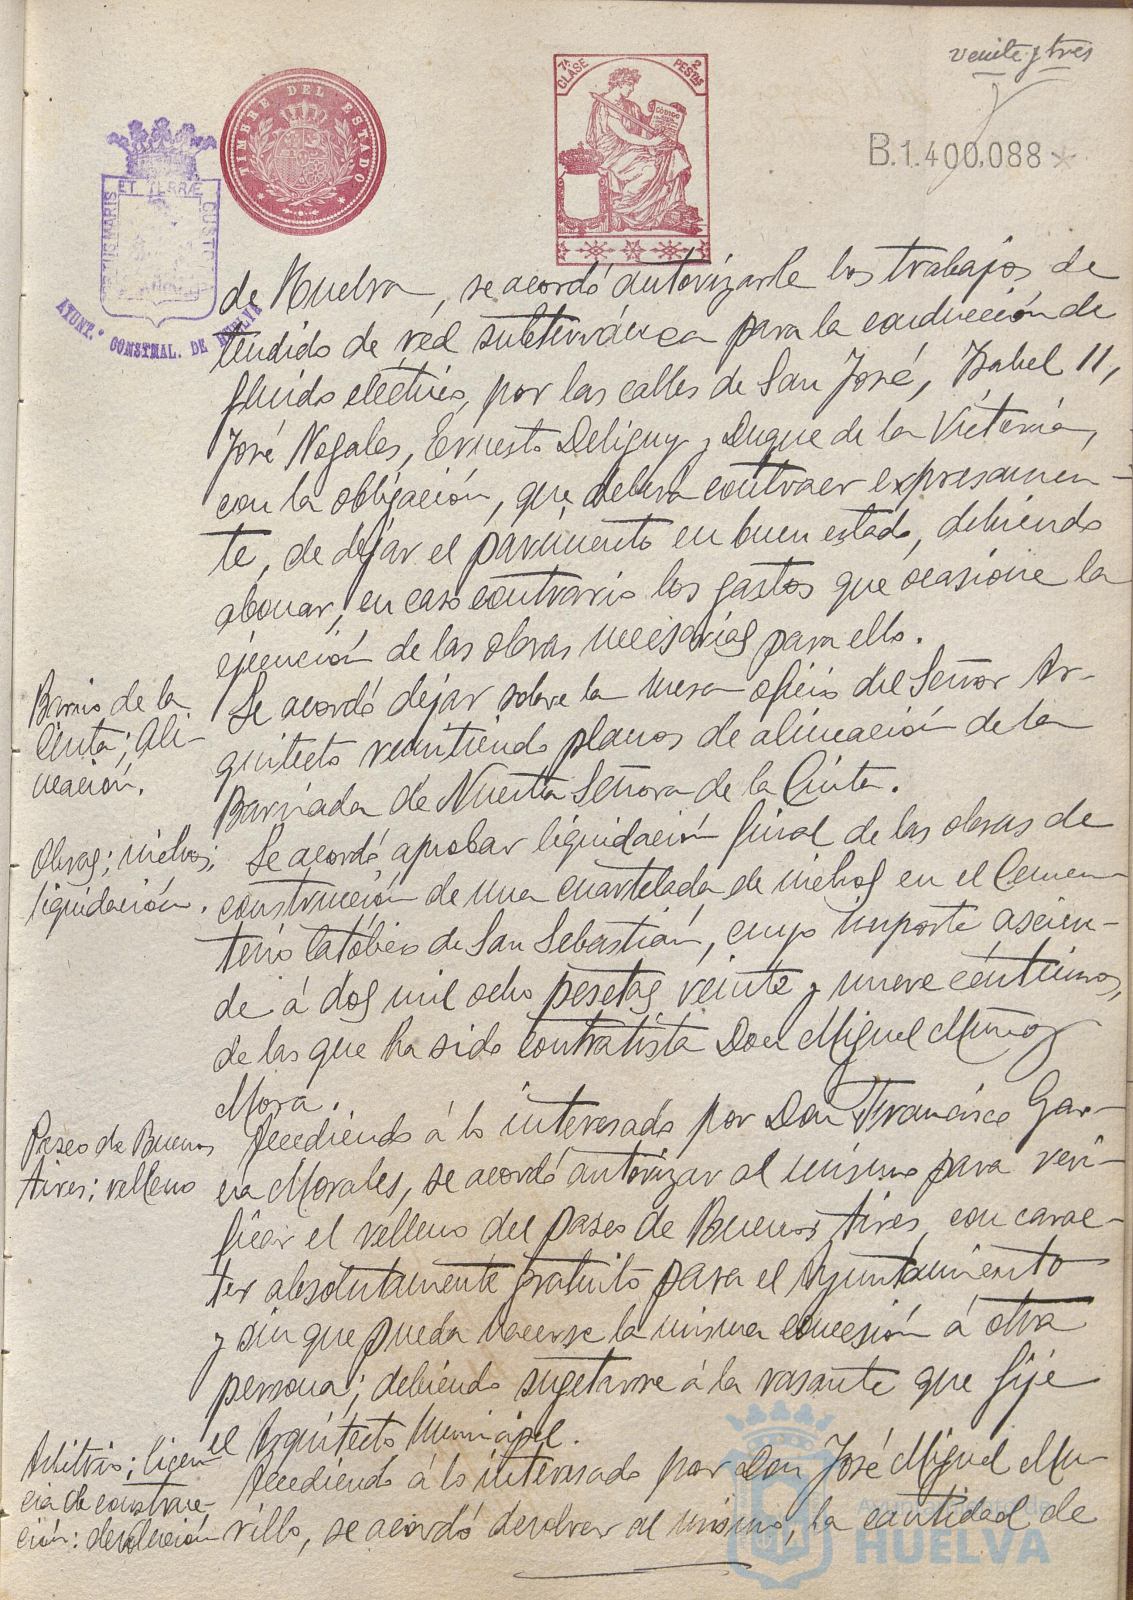 veinte y tres
TIMBRE DEL ESTADO
7ª CLASE
2 PESETAS
CÓDIGO
B.1.400.088*
PORTUS MARIS ET TERRÆ CUSTODIA
AYUNT.º CONSTNAL. DE HUELVA
de Huelva, se acordó autorizarle los trabajos de
tendido de red subterránea para la conducción de
fluido eléctrico, por las calles de San José, Isabel II,
José Nogales, Ernesto Deligny y Duque de la Victoria,
con la obligación, que deberá contraer expresamen-
te, de dejar el pavimento en buen estado, debiendo
abonar, en caso contrario los gastos que ocasione la
ejecución de las obras necesarias para ello.
Barrio de la
Cinta; ali-
neación.
Se acordó dejar sobre la mesa oficio del Señor Ar-
quitecto remitiendo planos de alineación de la
Barriada de Nuestra Señora de la Cinta.
Obras; nichos;
liquidación.
Se acordó aprobar liquidación final de las obras de
construcción de una cuartelada de nichos en el Cemen-
terio Católico de San Sebastián, cuyo importe ascien-
de á dos mil ocho pesetas veinte y nueve céntimos,
de las que ha sido contratista Don Miguel Muñoz
Mora.
Paseo de Buenos
Aires; relleno
Accediendo á lo interesado por Don Francisco Gar-
cia Morales, se acordó autorizar al mismo para veri-
ficar el relleno del paseo de Buenos Aires, con carac-
ter absolutamente gratuito para el Ayuntamiento
y sin que pueda hacerse la misma concesión á otra
persona; debiendo sugetarse á la rasante que fije
el Arquitecto Municipal.
Arbitrio; licen-
cia de construc-
ción: devolución
Accediendo á lo interesado por Don José Miguel Mu-
rillo, se acordó devolver al mismo, la cantidad de
Ayuntamiento de
HUELVA